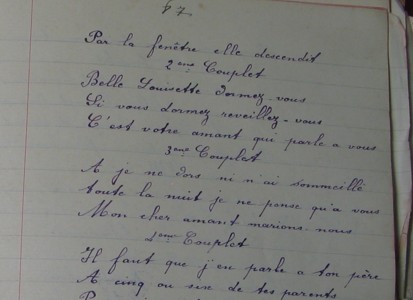 67
Par la fenêtre elle descendit
2eme Couplet
Belle Louisette dormez-vous
Si vous dormez reveillez-vous
C'est votre amant qui parle a vous
3eme Couplet
A je ne dors ni n'ai sommeillé
toute la nuit je ne pense qu'a vous
Mon cher amant marions-nous
4eme Couplet
Il faut que j'en parle a ton père
A cinq ou six de tes parents